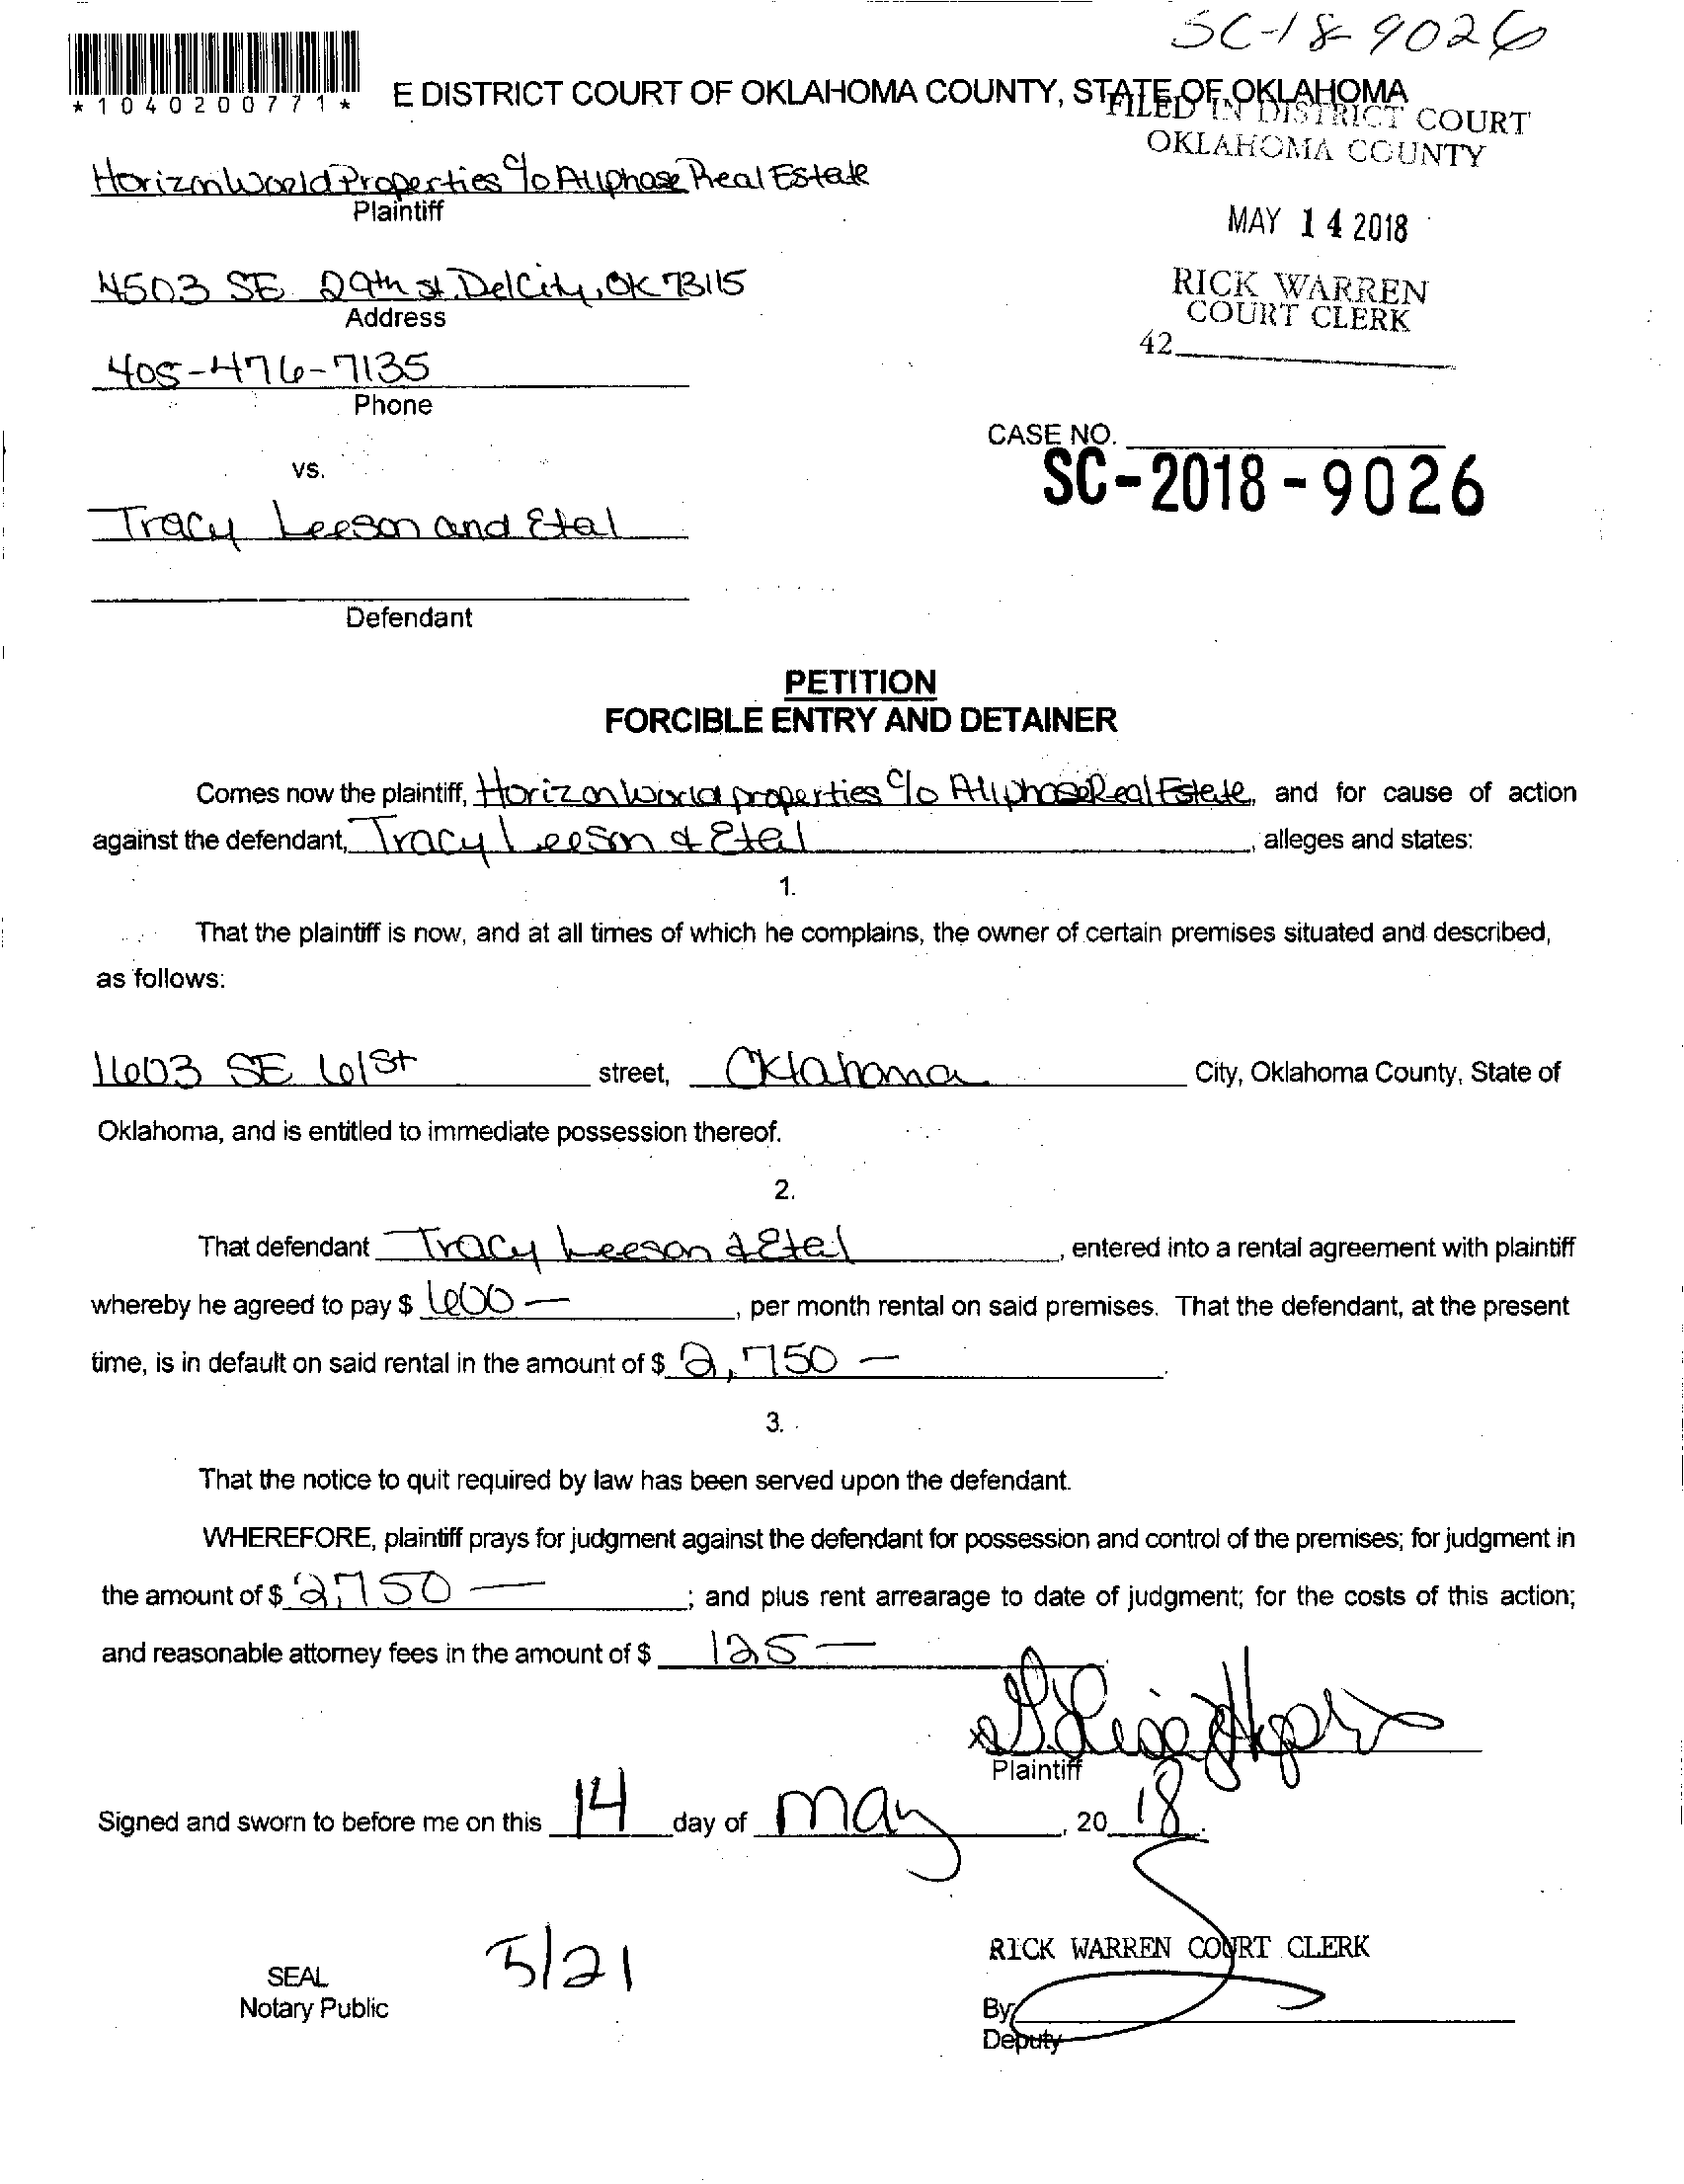 SC-18-9026
*1040200771*
E DISTRICT COURT OF OKLAHOMA COUNTY, STATE OF OKLAHOMA
FILED IN DISTRICT COURT
OKLAHOMA COUNTY
Horizon World Properties c/o Allphase Real Estate
Plaintiff
MAY 14 2018
4503 SE 29th st. Del City, OK 73115
Address
RICK WARREN
COURT CLERK
42
405-476-7135
Phone
CASE NO.
SC-2018-9026
vs.
Tracy Leeson and Etal
Defendant
PETITION
FORCIBLE ENTRY AND DETAINER
Comes now the plaintiff, Horizon World properties c/o Allphase Real Estate, and for cause of action
against the defendant, Tracy Leeson & Etal, alleges and states:
1.
That the plaintiff is now, and at all times of which he complains, the owner of certain premises situated and described,
as follows:
1603 SE 61st street, Oklahoma City, Oklahoma County, State of
Oklahoma, and is entitled to immediate possession thereof.
2.
That defendant Tracy Leeson & Etal, entered into a rental agreement with plaintiff
whereby he agreed to pay $ 600 —, per month rental on said premises. That the defendant, at the present
time, is in default on said rental in the amount of $ 2,750 —.
3.
That the notice to quit required by law has been served upon the defendant.
WHEREFORE, plaintiff prays for judgment against the defendant for possession and control of the premises; for judgment in
the amount of $ 2,750 —; and plus rent arrearage to date of judgment; for the costs of this action;
and reasonable attorney fees in the amount of $ 125 —
Plaintiff
Signed and sworn to before me on this 14 day of May, 20 18.
5/21
RICK WARREN COURT CLERK
SEAL
Notary Public
By
Deputy